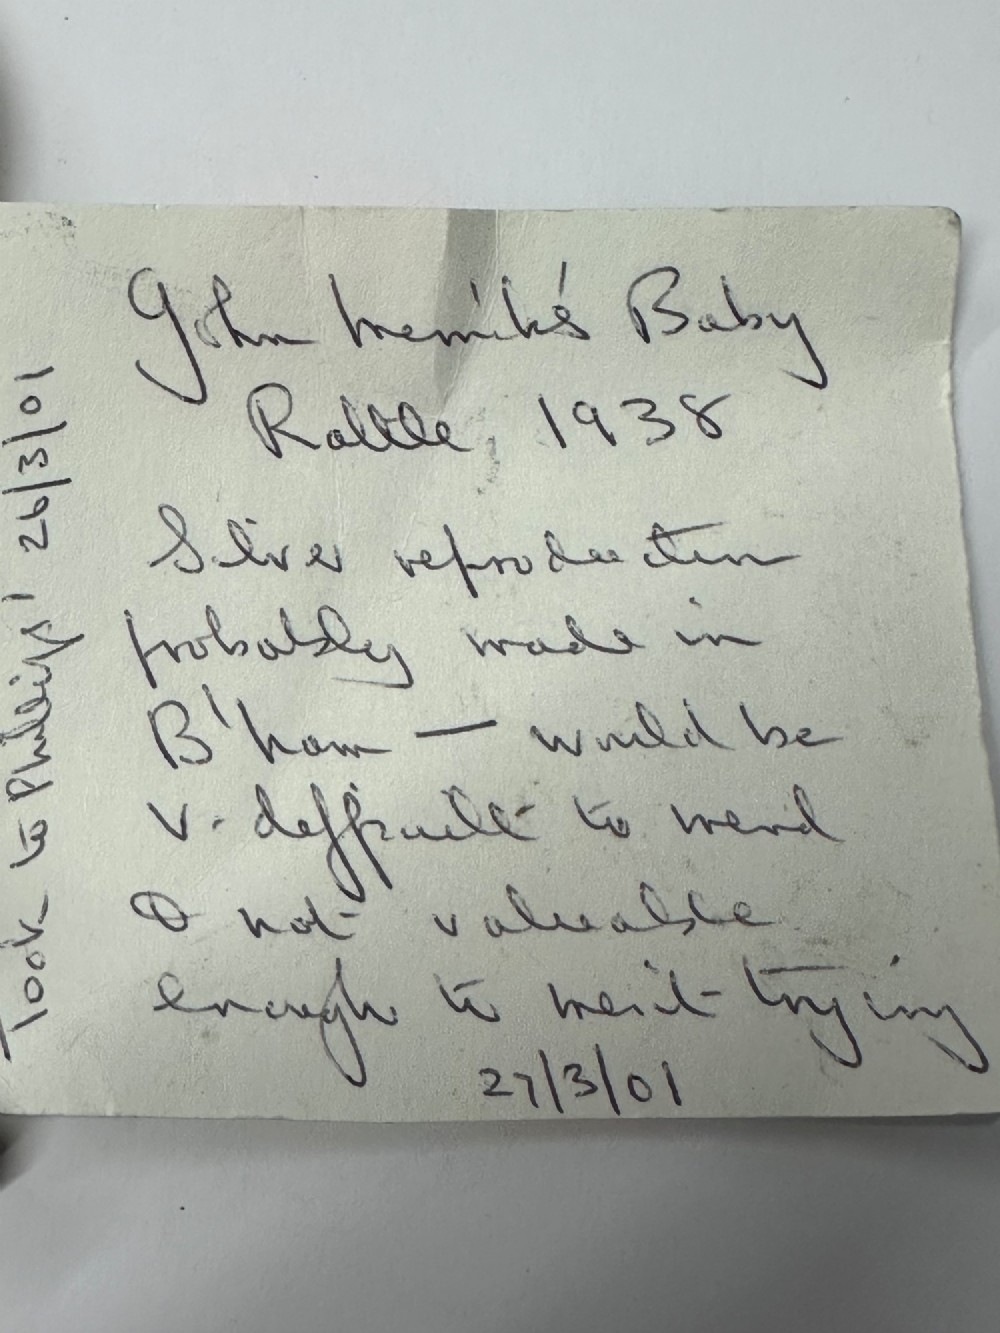 John Merrik's Baby
Rattle, 1938
Silver reproduction
probably made in
B'ham — would be
v. difficult to mend
& not valuable
enough to merit trying
27/3/01
Took to Phillips' 26/3/01